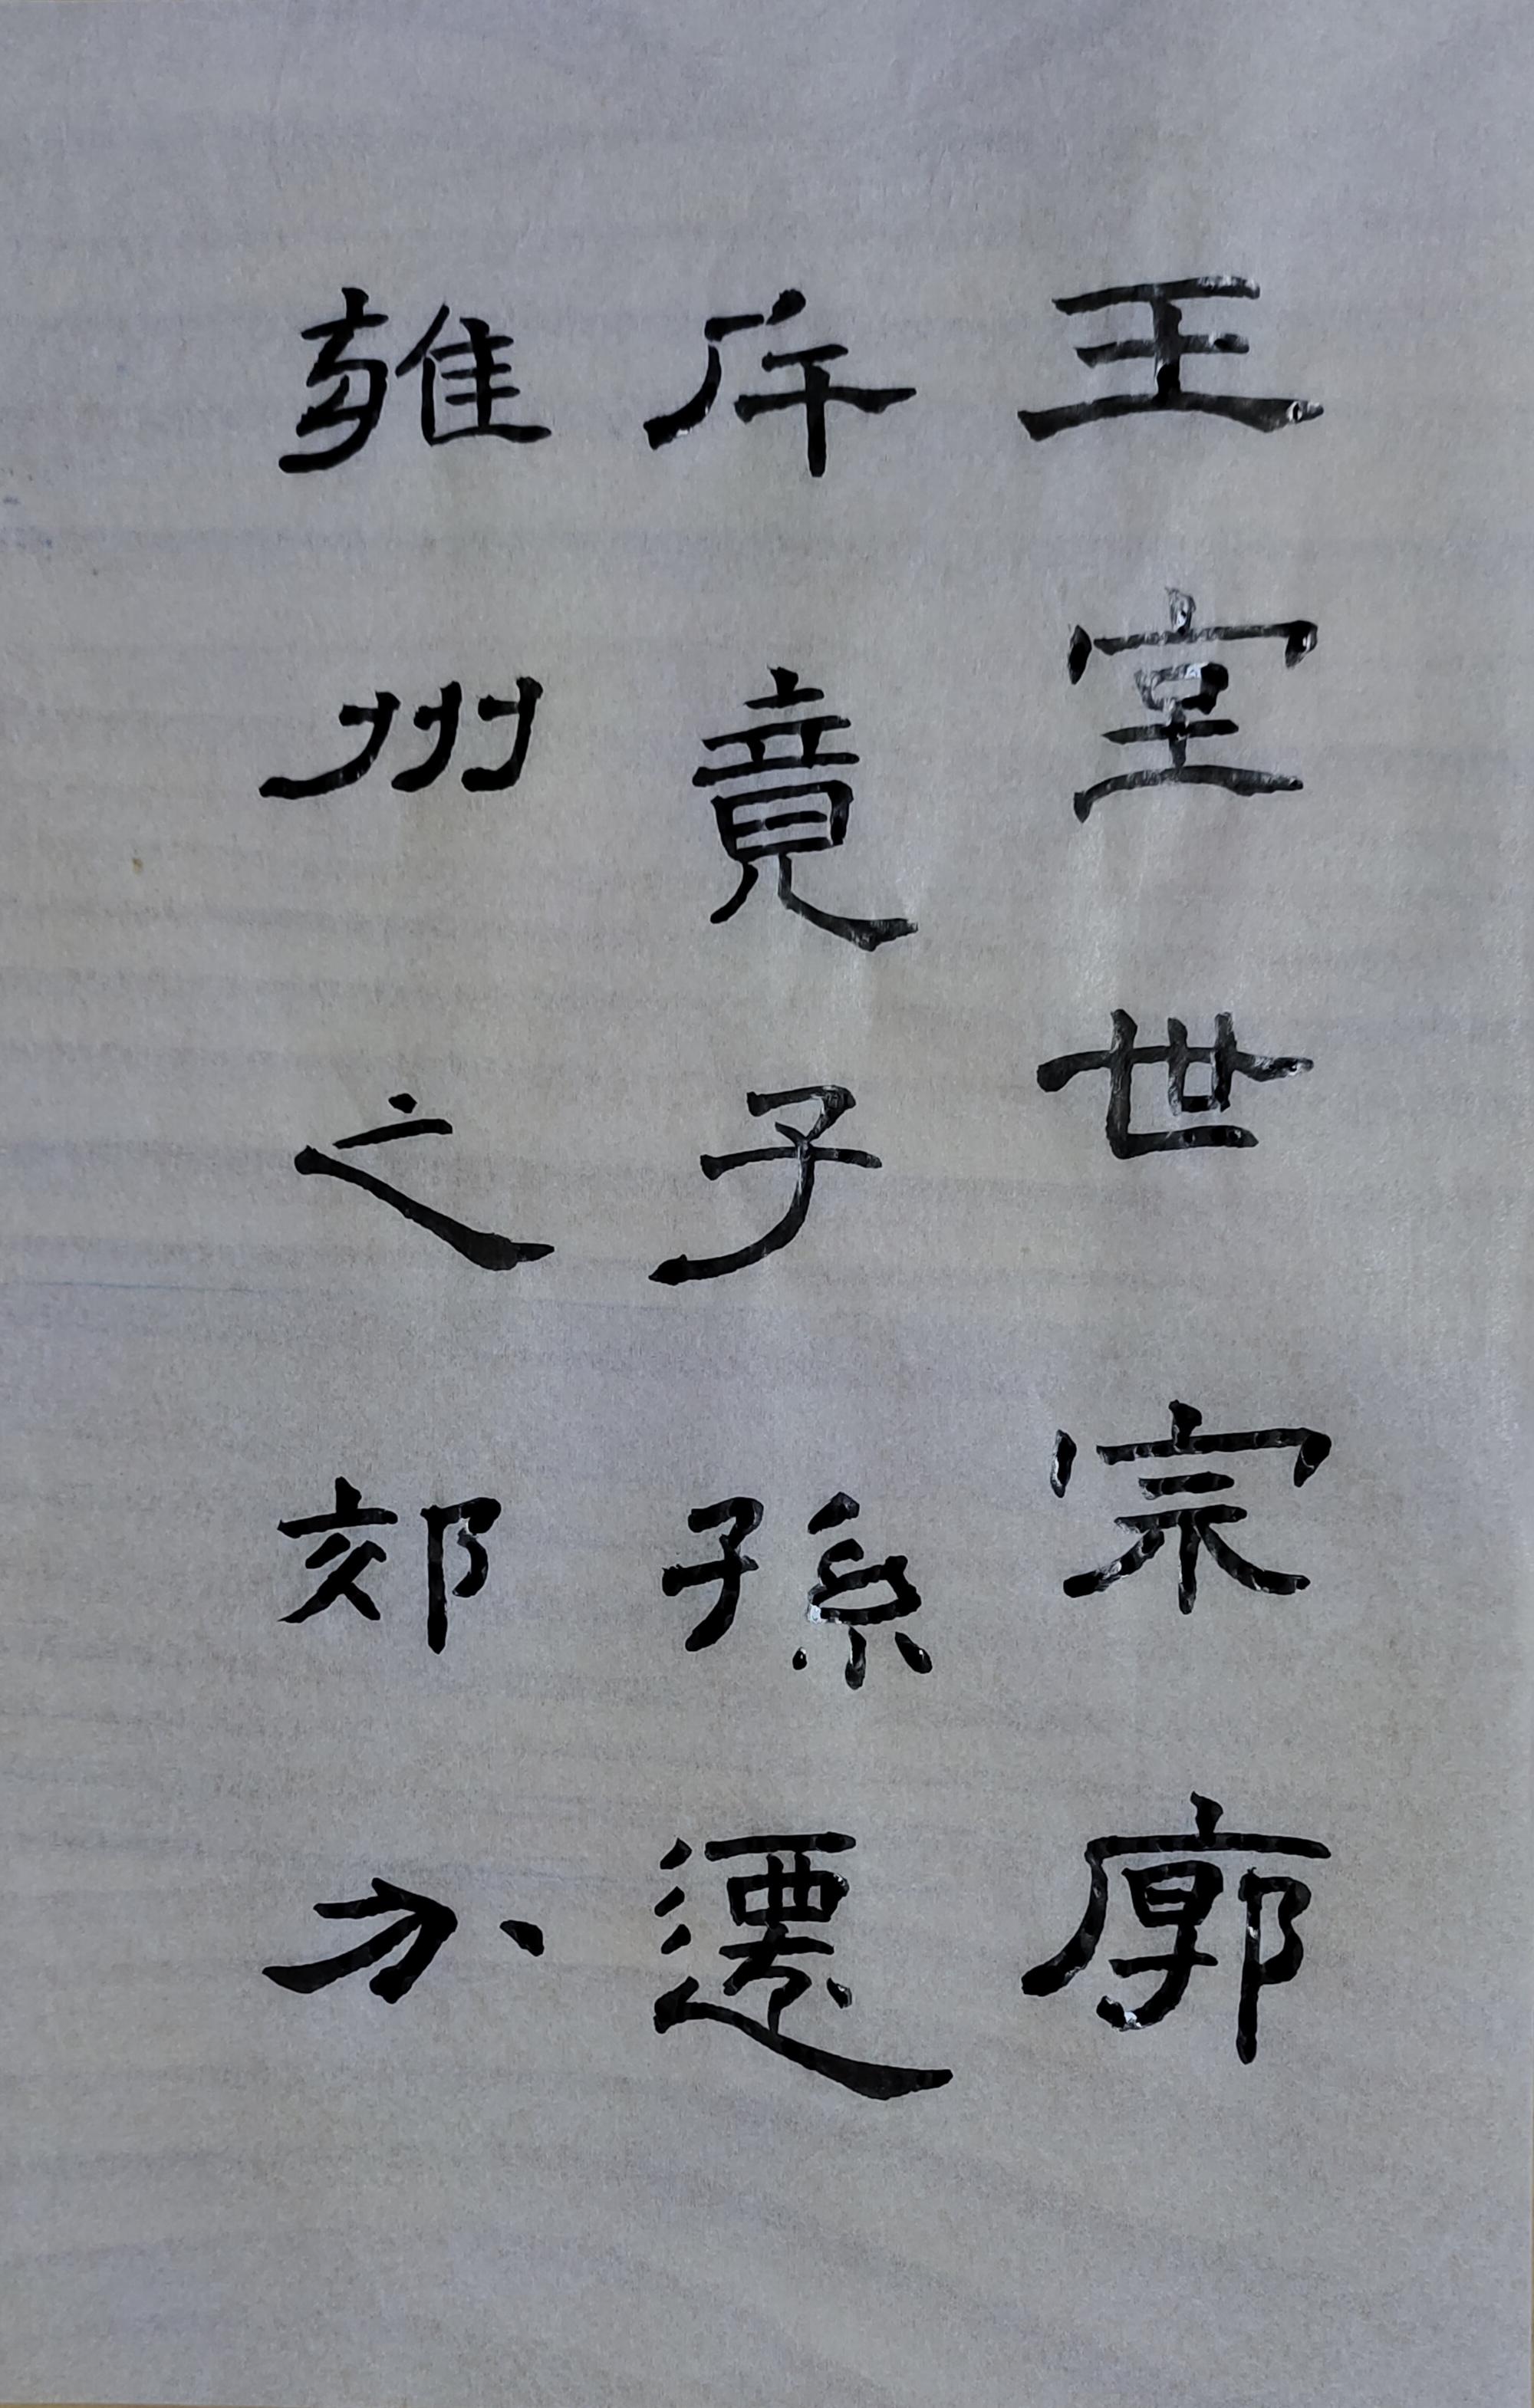 王室世宗廓
斥竟子孫遷
雍州之郊分